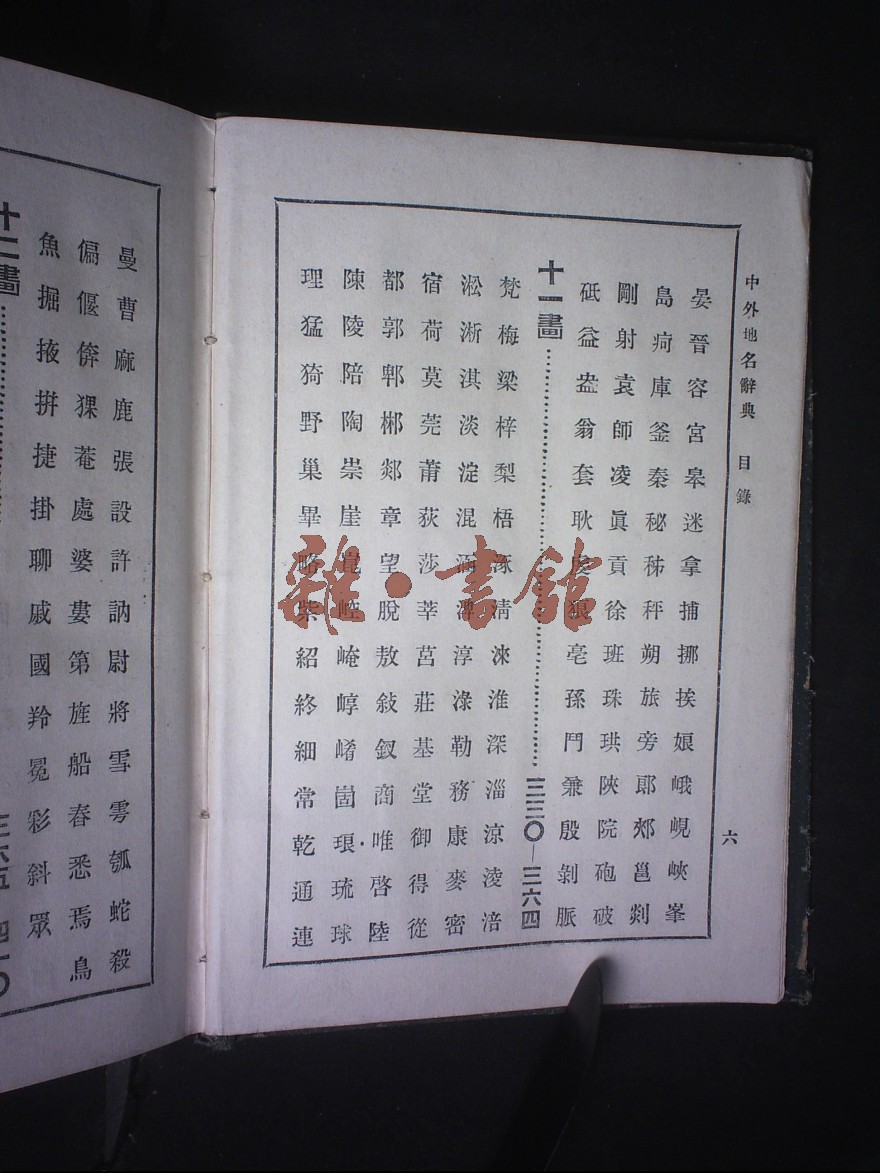 中外地名辭典 目錄 六
晏晉容宮皋迷拿捕挪挨娘峨峴峽峯
島疴庫釜秦秘秭秤朔旅旁郎郟邕剡
剛射袁師凌眞貢徐班珠珙陝院砲破
砥益盎翁套耿狼亳孫鬥兼殷剝脈
十一畫……三三〇—三六四
梵梅梁梓梨梧涿清淶淮深淄涼淩涪
淞淅淇淡淀混淳淥勒務康麥密
宿荷莫莞莆荻莎莘莒莊基堂御得從
都郭郫郴郯章望脫敖敍釵商唯啓陸
陳陵陪陶崇崖崑崆崦崞崤崮琅琉球
理猛猗野巢畢略紫紹終細常乾通連
曼曹麻鹿張設許訥尉將雪雩瓠蛇殺
偏偃倴猓菴處婆婁第旌船春悉焉鳥
魚掘掖掛捷掛聊戚國羚冕彩斜眾
十二畫……三六五
雜·書館